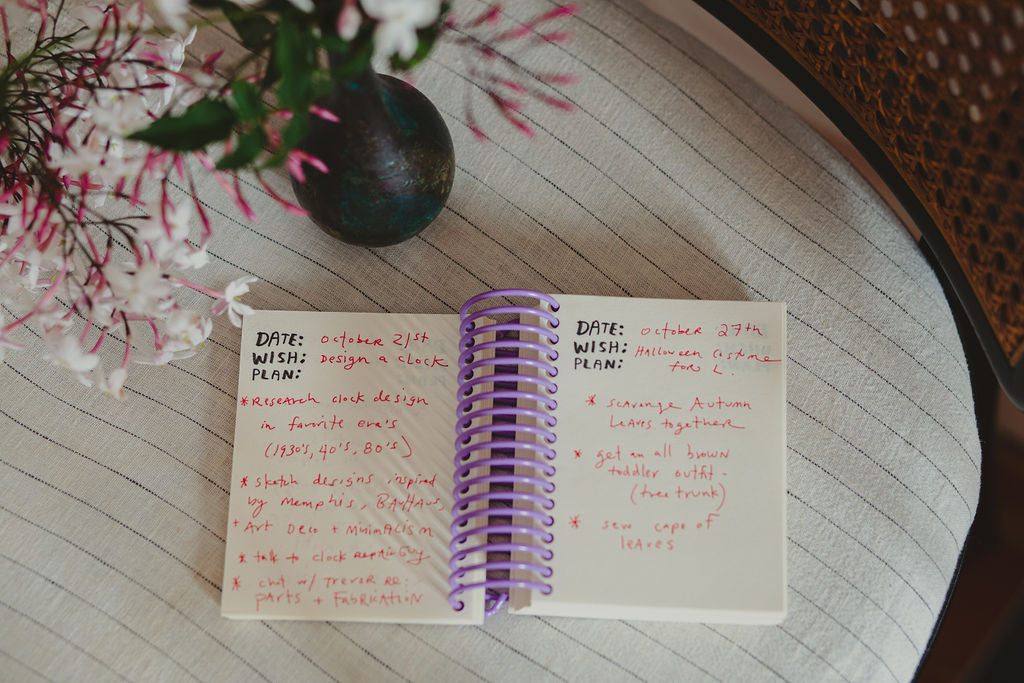 DATE: October 21st
WISH: Design a clock
PLAN:
*Research clock design
in favorite era's
(1930's, 40's, 80's)
* sketch designs inspired
by Memphis, BAUHAUS,
+ Art Deco + Minimalism
* talk to clock repair guy
* chat w/ Trevor re:
parts + Fabrication
DATE: October 27th
WISH: Halloween Costume
PLAN: for L.
* scavenge Autumn
leaves together
* get an all brown
toddler outfit -
(tree trunk)
* sew cape of
leaves